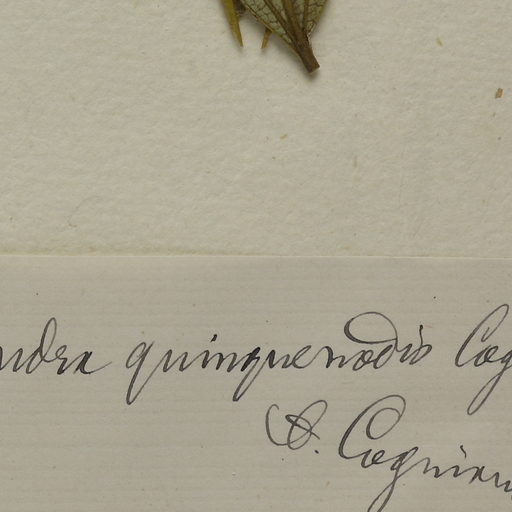 ndra quinquenodis Cog
A. Cogniau